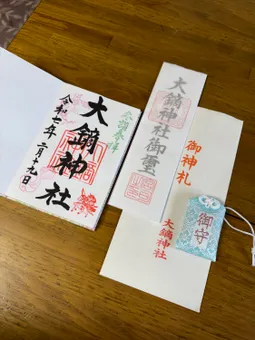 奉拝
大鏑神社
令和七年二月十九日
大鏑神社御璽
御神札
大鏑神社
御守